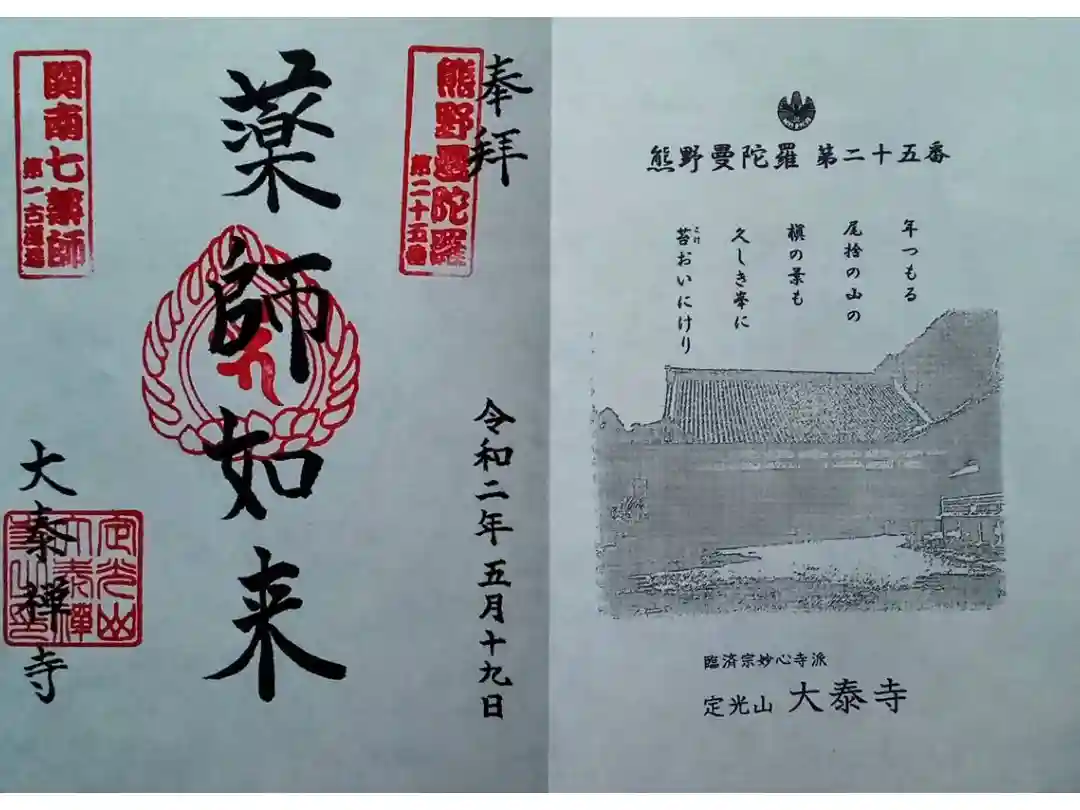 熊野曼陀羅 第二十五番
年つもる
尾捨の山の
槇の葉も
久しき峯に
苔おいにけり
こけ
臨済宗妙心寺派
定光山 大泰寺
奉拝
熊野曼陀羅
第二十五番
令和二年五月十九日
薬師如来
関南七薬師
大泰禅寺
定光山